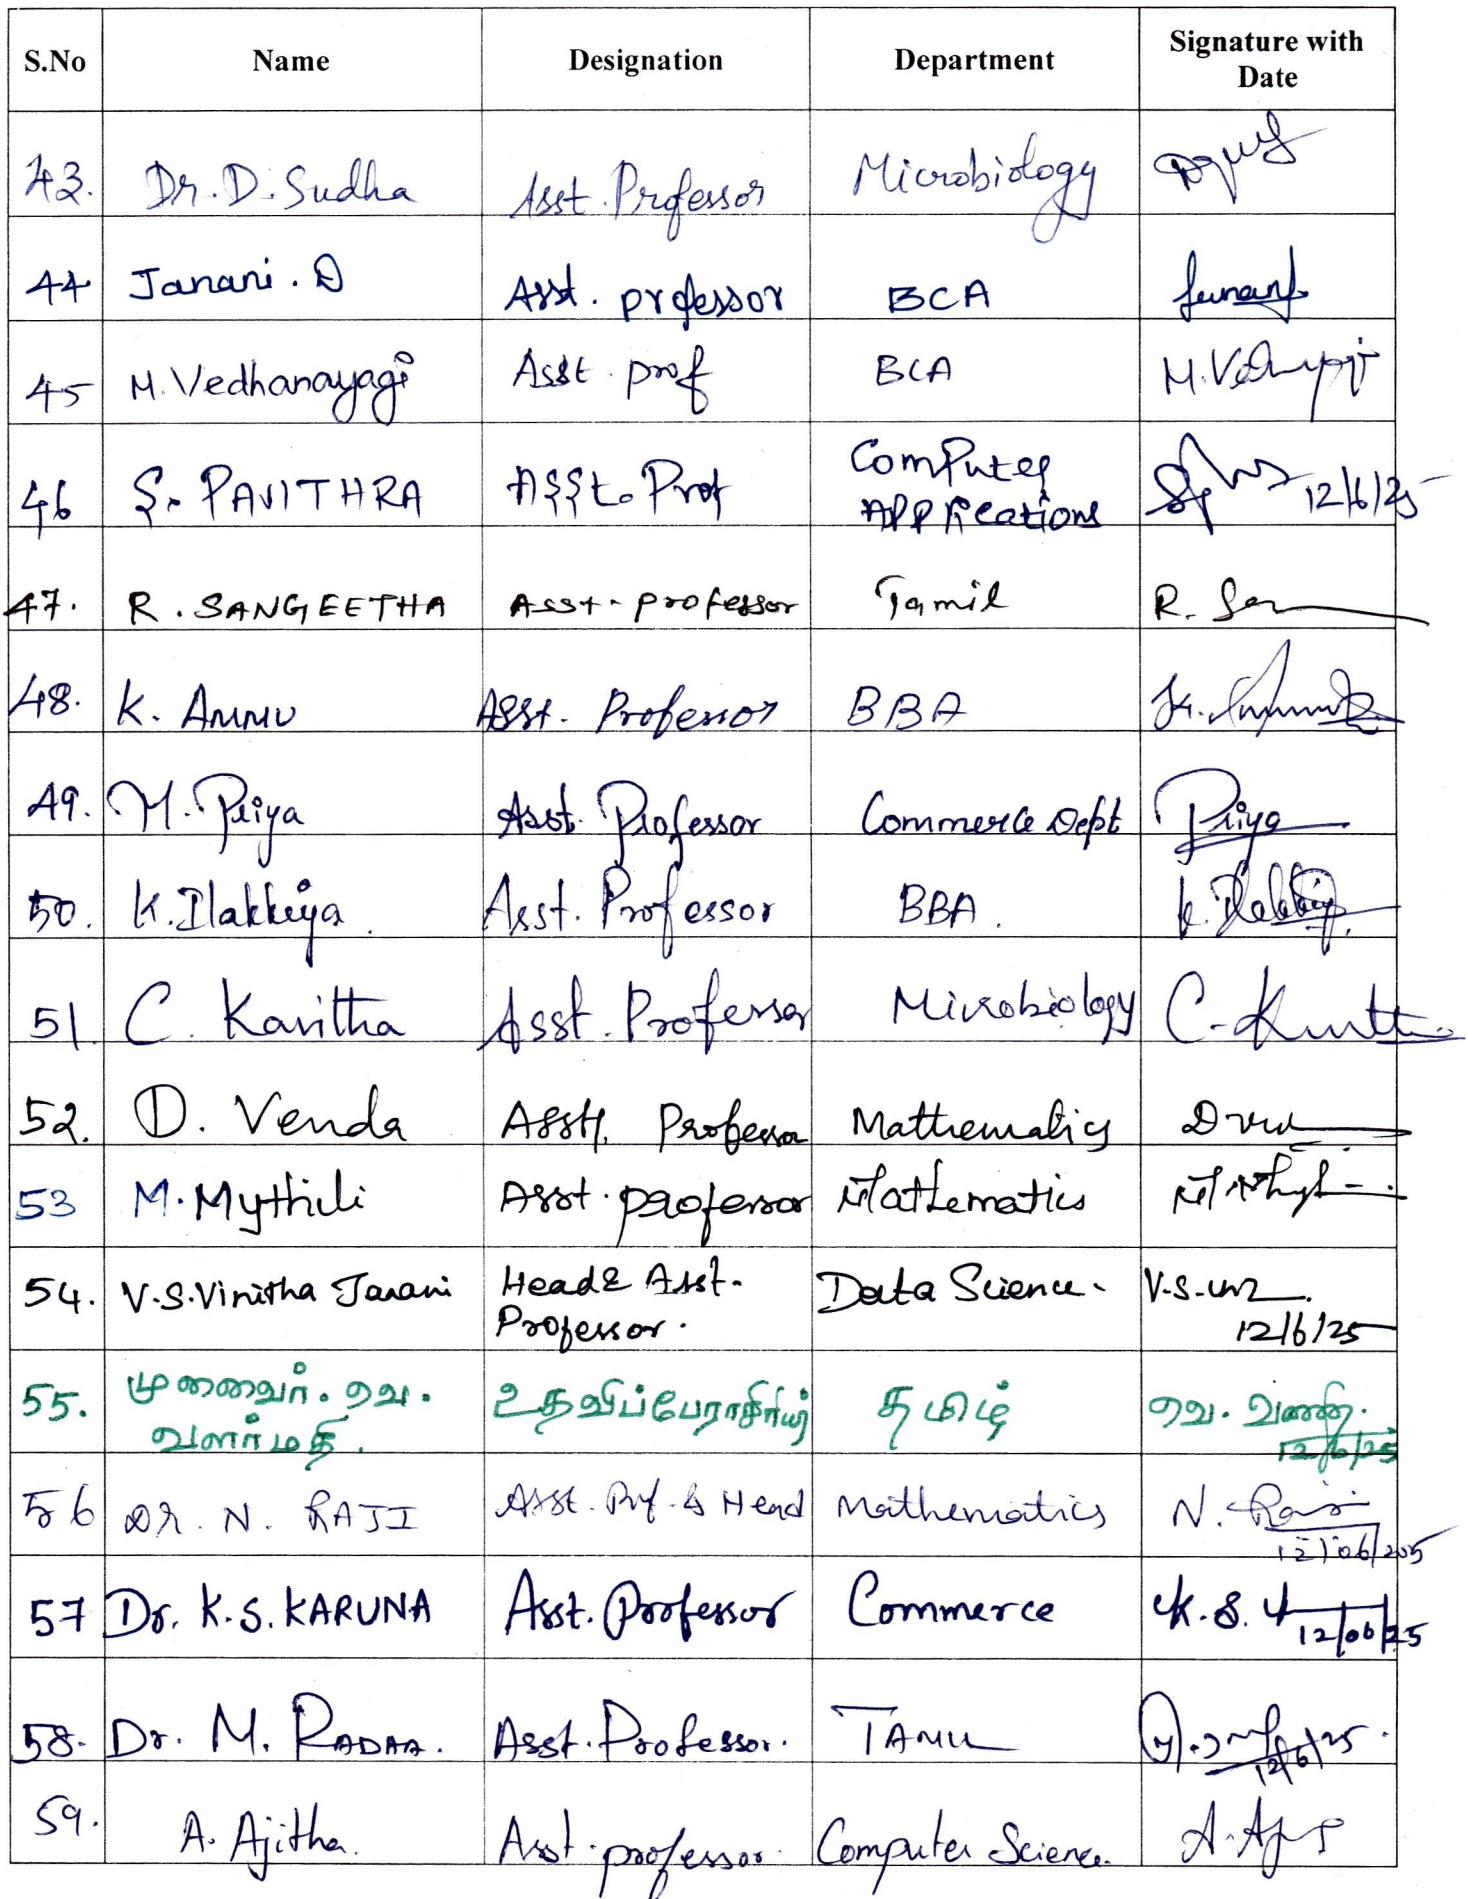 S.No Name Designation Department Signature with Date
43. Dr. D. Sudha Asst. Professor Microbiology
44 Janani. D Asst. professor BCA
45 M. Vedhanayagi Asst. prof BCA
46 S. PAVITHRA Asst. Prof Computer Applications 12/6/25
47. R. SANGEETHA Asst. professor Tamil R. San
48. K. AMMU Asst. Professor BBA
49. M. Priya Asst. Professor Commerce Dept Priya
50. K. Ilakkiya. Asst. Professor BBA. K. Ilakkiya
51 C. Kavitha Asst. Professor Microbiology
52. D. Venda Asst. Professor Mathematics
53 M. Mythili Asst. professor Mathematics
54. V.S. Vinitha Janani Head & Asst. Professor. Data Science. V.S. 12/6/25
55. முனைவர். வ. வளர்மதி. உதவிப்பேராசிரியர் தமிழ் 12/6/25
56 Dr. N. RAJI Asst. Prof. & Head Mathematics N. Raji 12/06/205
57 Dr. K.S. KARUNA Asst. Professor Commerce K.S. 12/06/25
58. Dr. M. RADAA. Asst. Professor. TAMIL 12/6/25.
59. A. Ajitha. Asst. professor. Computer Science.